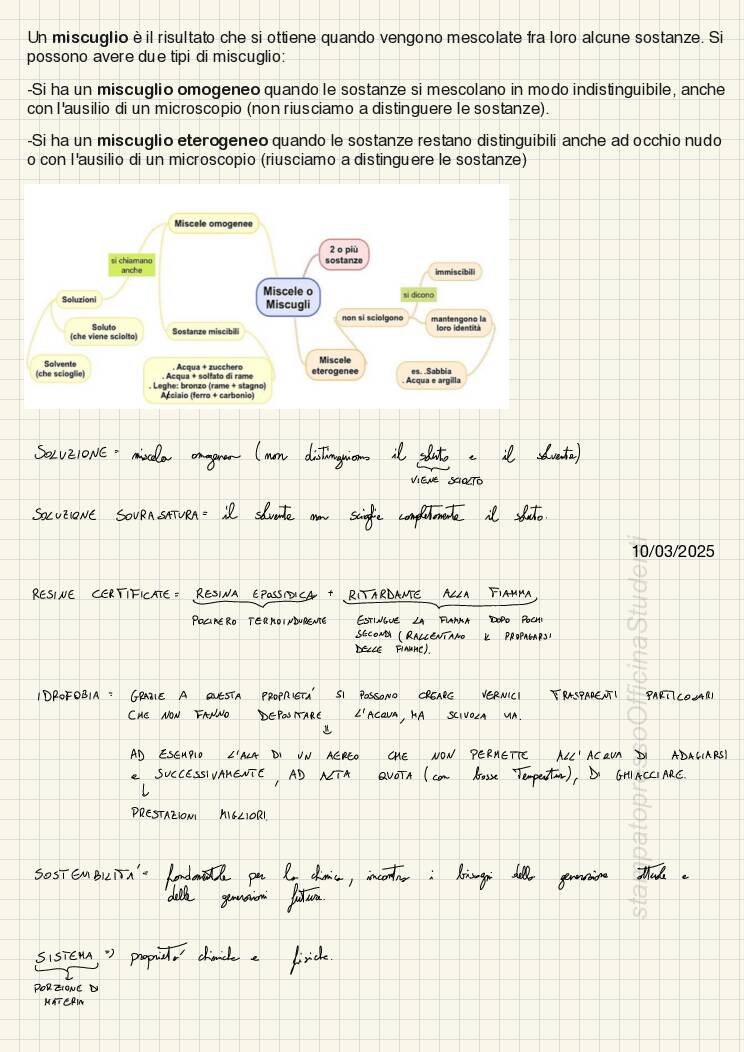 Un miscuglio è il risultato che si ottiene quando vengono mescolate fra loro alcune sostanze. Si
possono avere due tipi di miscuglio:
-Si ha un miscuglio omogeneo quando le sostanze si mescolano in modo indistinguibile, anche
con l'ausilio di un microscopio (non riusciamo a distinguere le sostanze).
-Si ha un miscuglio eterogeneo quando le sostanze restano distinguibili anche ad occhio nudo
o con l'ausilio di un microscopio (riusciamo a distinguere le sostanze)
Miscele omogenee
si chiamano
anche
Soluzioni
Soluto
(che viene sciolto)
Solvente
(che scioglie)
Sostanze miscibili
. Acqua + zucchero
. Acqua + solfato di rame
. Leghe: bronzo (rame + stagno)
Acciaio (ferro + carbonio)
Miscele o
Miscugli
2 o più
sostanze
Miscele
eterogenee
non si sciolgono
si dicono
immiscibili
mantengono la
loro identità
es. .Sabbia
. Acqua e argilla
SOLUZIONE = miscela omogenea (non distinguiamo il soluto e il solvente)
VIENE SCIOLTO
SOLUZIONE SOVRASATURA = il solvente non scioglie completamente il soluto.
10/03/2025
RESINE CERTIFICATE = RESINA EPOSSIDICA + RITARDANTE ALLA FIAMMA
POLIMERO TERMOINDURENTE
ESTINGUE LA FIAMMA DOPO POCHI
SECONDI (RALLENTANO IL PROPAGARSI
DELLE FIAMME).
IDROFOBIA = GRAZIE A QUESTA PROPRIETÀ SI POSSONO CREARE VERNICI TRASPARENTI PARTICOLARI
CHE NON FANNO DEPOSITARE L'ACQUA, MA SCIVOLA VIA.
⇓
AD ESEMPIO L'ALA DI UN AEREO CHE NON PERMETTE ALL'ACQUA DI ADAGIARSI
e SUCCESSIVAMENTE, AD ALTA QUOTA (con basse Temperature), DI GHIACCIARE.
↓
PRESTAZIONI MIGLIORI.
SOSTENIBILITÀ = fondamentale per la chimica, incontra i bisogni della generazione attuale e
delle generazioni future.
SISTEMA => proprietà chimiche e fisiche.
↓
PORZIONE DI
MATERIA
stampatopressoOfficinaStudenti